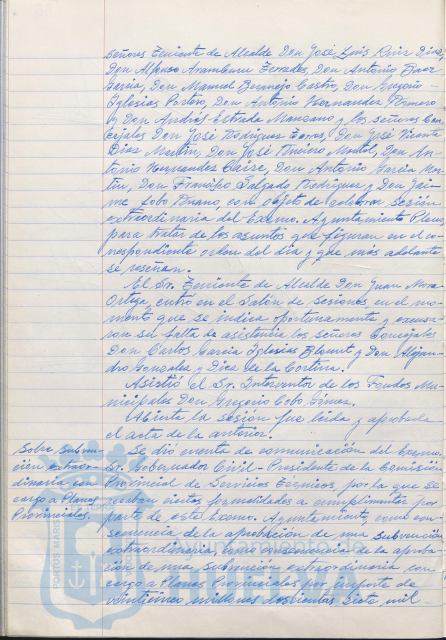 señores Teniente de Alcalde Don José Luis Ruiz Díaz,
Don Alfonso Aramburu Terrades, Don Antonio Baez
García, Don Manuel Bermejo Castro, Don Gregorio
Iglesias Pastor, Don Antonio Hernandez Romero
y Don Andrés Estrada Manzano y los señores Con-
cejales Don José Rodriguez Don José Vicente
Díaz Martin, Don José Don An-
tonio Hernandez Don Antonio Garcia Mar-
tin, Don Francisco Salgado Rodriguez y Don Jai-
me Lobo con objeto de celebrar sesión
extraordinaria del Excmo. Ayuntamiento Pleno
para tratar de los asuntos que figuran en el co-
rrespondiente orden del día y que más adelante
se reseñan.
El Sr. Teniente de Alcalde Don Juan
Ortega, entró en el Salón de sesiones, en el mo-
mento que se indica oportunamente y excusa-
ron su falta de asistencia los señores Concejales
Don Carlos Garcia Iglesias y Don Alejan-
dro Gonzalez y Diez de la Cortina.
Asistió el Sr. Interventor de los Fondos Mu-
nicipales Don Gregorio Cobo Gómez.
Abierta la sesión fue leída y aprobada
el acta de la anterior.
Sobre subven-
ción extraor-
dinaria con
cargo a Planes
Provinciales.
Se dió cuenta de comunicación del Excmo.
Sr. Gobernador Civil-Presidente de la Comisión
Provincial de Servicios Técnicos, por la que se
ciertas formalidades a cumplimentar por
parte de este Excmo. Ayuntamiento, como con-
secuencia de la aprobación de una subvención
extraordinaria, como consecuencia de la aproba-
ción de una subvención extraordinaria con
cargo a Planes Provinciales por importe de
veinticinco millones doscientas siete mil